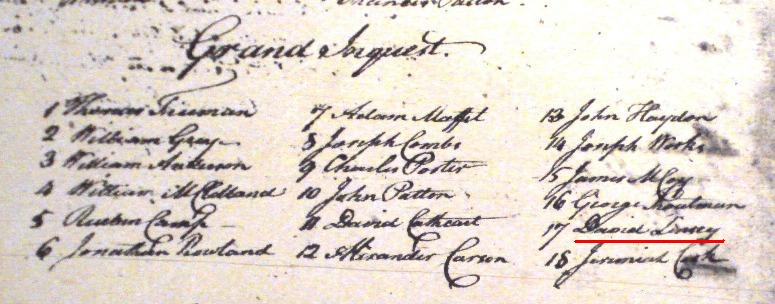 Grand Inquest.
1 Thomas Freeman 7 Adam Maffit 13 John Haydon
2 William Gray 8 Joseph Combs 14 Joseph Work
3 William Anderson 9 Charles Porter 15 James McCoy
4 William McClelland 10 John Patton 16 George Troutman
5 Reuben Camp 11 David Cathcart 17 David
6 Jonathan Rowland 12 Alexander Carson 18 Jeremiah Cook